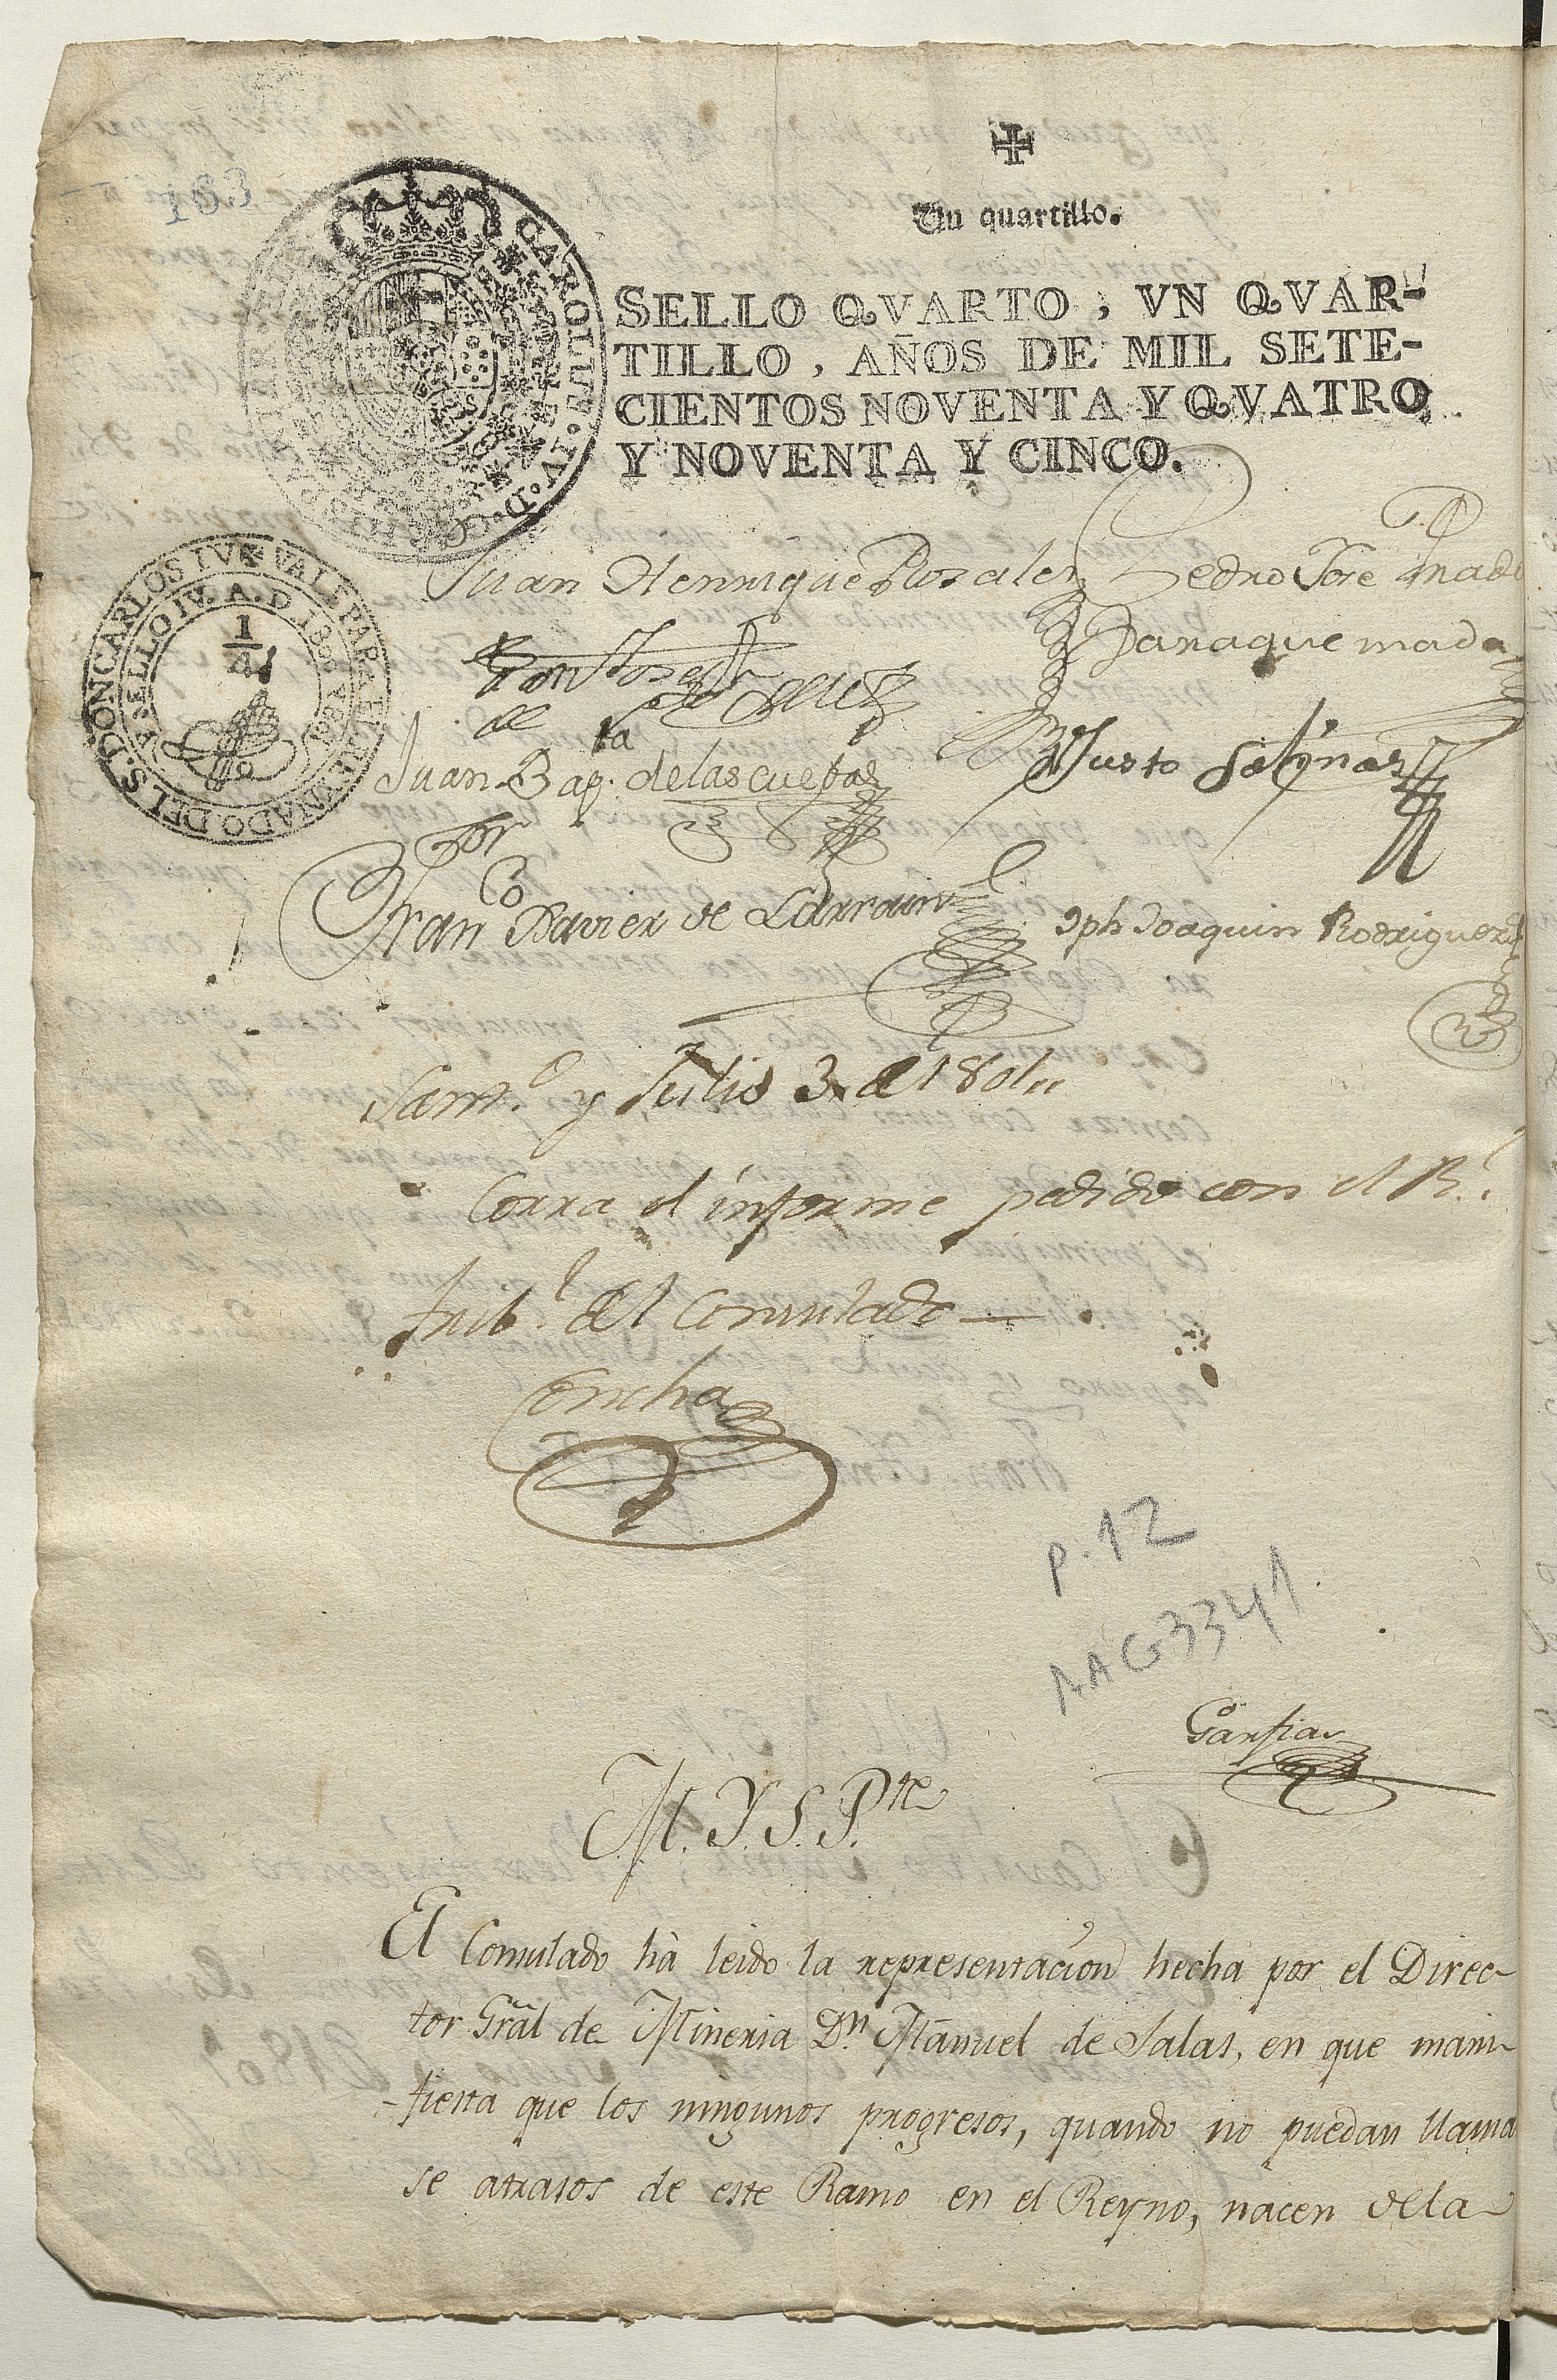 163
Un quartillo.
SELLO QVARTO, VN QVAR-
TILLO, AÑOS DE MIL SETE-
CIENTOS NOVENTA Y QVATRO,
Y NOVENTA Y CINCO.
CAROLUS. IV. D. G.
VALE PAR. EL REYNADO DEL S. D. ON CARLOS IV
SELLO IV. A. D. 18
1/4
Juan Henrrique Rosales Pedro Jose Prado
Jaraquemada
Juan Bap.ta delas cuebas Justo Salinas
Por
Fran.co Xavier de Larrain Jph Joaquin Rodriguez
Sant.o y Julio 3 de 1801,,
Corra el informe pedido con el R.l
trib.l del Consulado—
Concha
P. 12
AAG3341
Garfias
M. Y. S. P.te
El Consulado há leido la representación hecha por el Direc-
tor Grãl de Mineria D.n Manuel de Salas, en que mani-
-fiesta que los ningunos progresos, quando no puedan llama
se atrasos de este Ramo en el Reyno, nacen dela